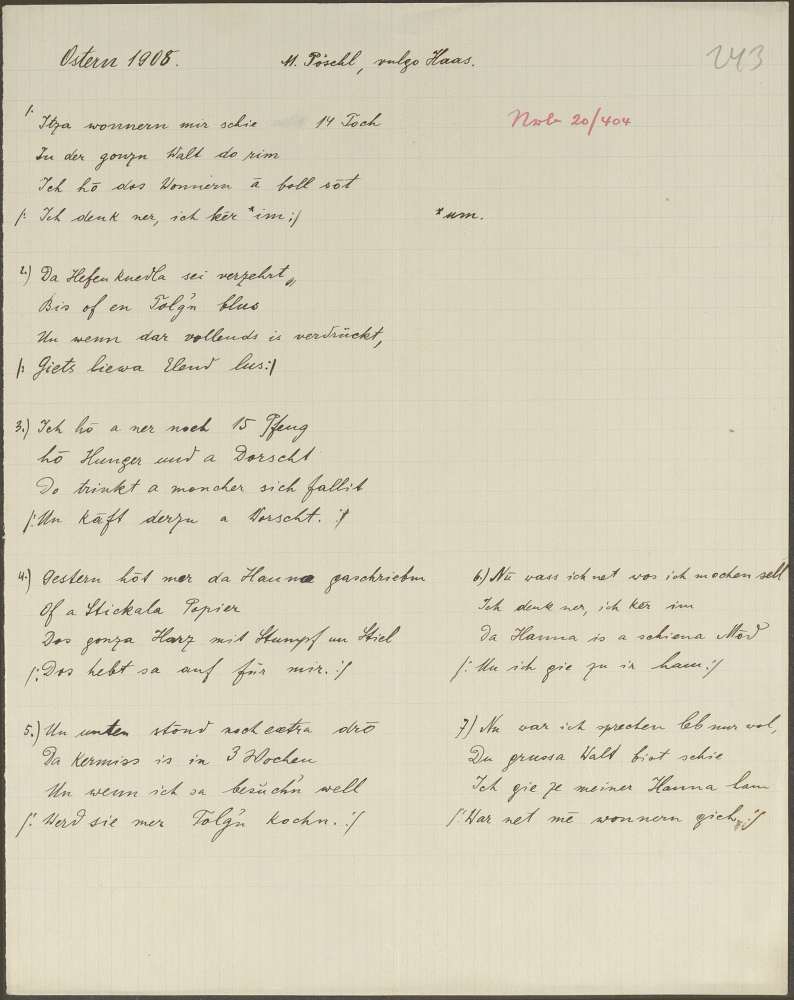 Ostern 1908.
M. Pöschl, vulgo Haas.
243
1.
Itza wonnern mir schie 14 Toch
In der gonzn Walt do rim
Ich hō dos Wonnern ā boll sōt
/: Ich denk ner, ich kēr *im :/
*um.
2.) Da Hefenknedla sei verzehrt,
Bis of en Tolg'n blus
Un wenn dar vollends is verdrückt,
/: Giets liewa Elend lus :/
3.) Ich hō a ner noch 15 Pfeng
hō Hunger und a Dorscht
Do trinkt a moncher sich fallit
/: Un kāft derzu a Worscht. :/
4.) Gestern hōt mer da Hanna gaschriebm
Of a Stickala Popier
Dos gonza Harz mit Stumpf un Stiel
/: Dos hebt sa auf für mir. :/
5.) Un unten stond noch extra drō
Da Kermiss is in 3 Wochen
Un wenn ich sa besuch'n well
/: Werd sie mer Tolg'n kochn. :/
6.) Nū wass ich net wos ich mochen sell
Ich denk ner, ich kēr im
Da Hanna is a schiena Mōd
/: Un ich gie zu ir ham :/
7.) Nu war ich sprechen leb nur wol,
Du grussa Walt bist schie
Ich gie ze meiner Hanna ham
/: War net mē wonnern gieh. :/